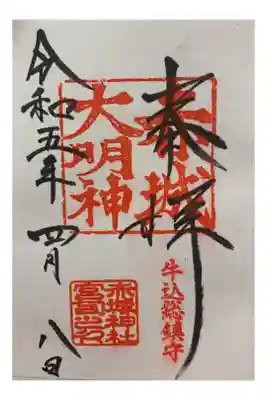 奉拝
赤城
大明神
牛込総鎮守
令和五年 四月 八日
赤城神社
宮司之印